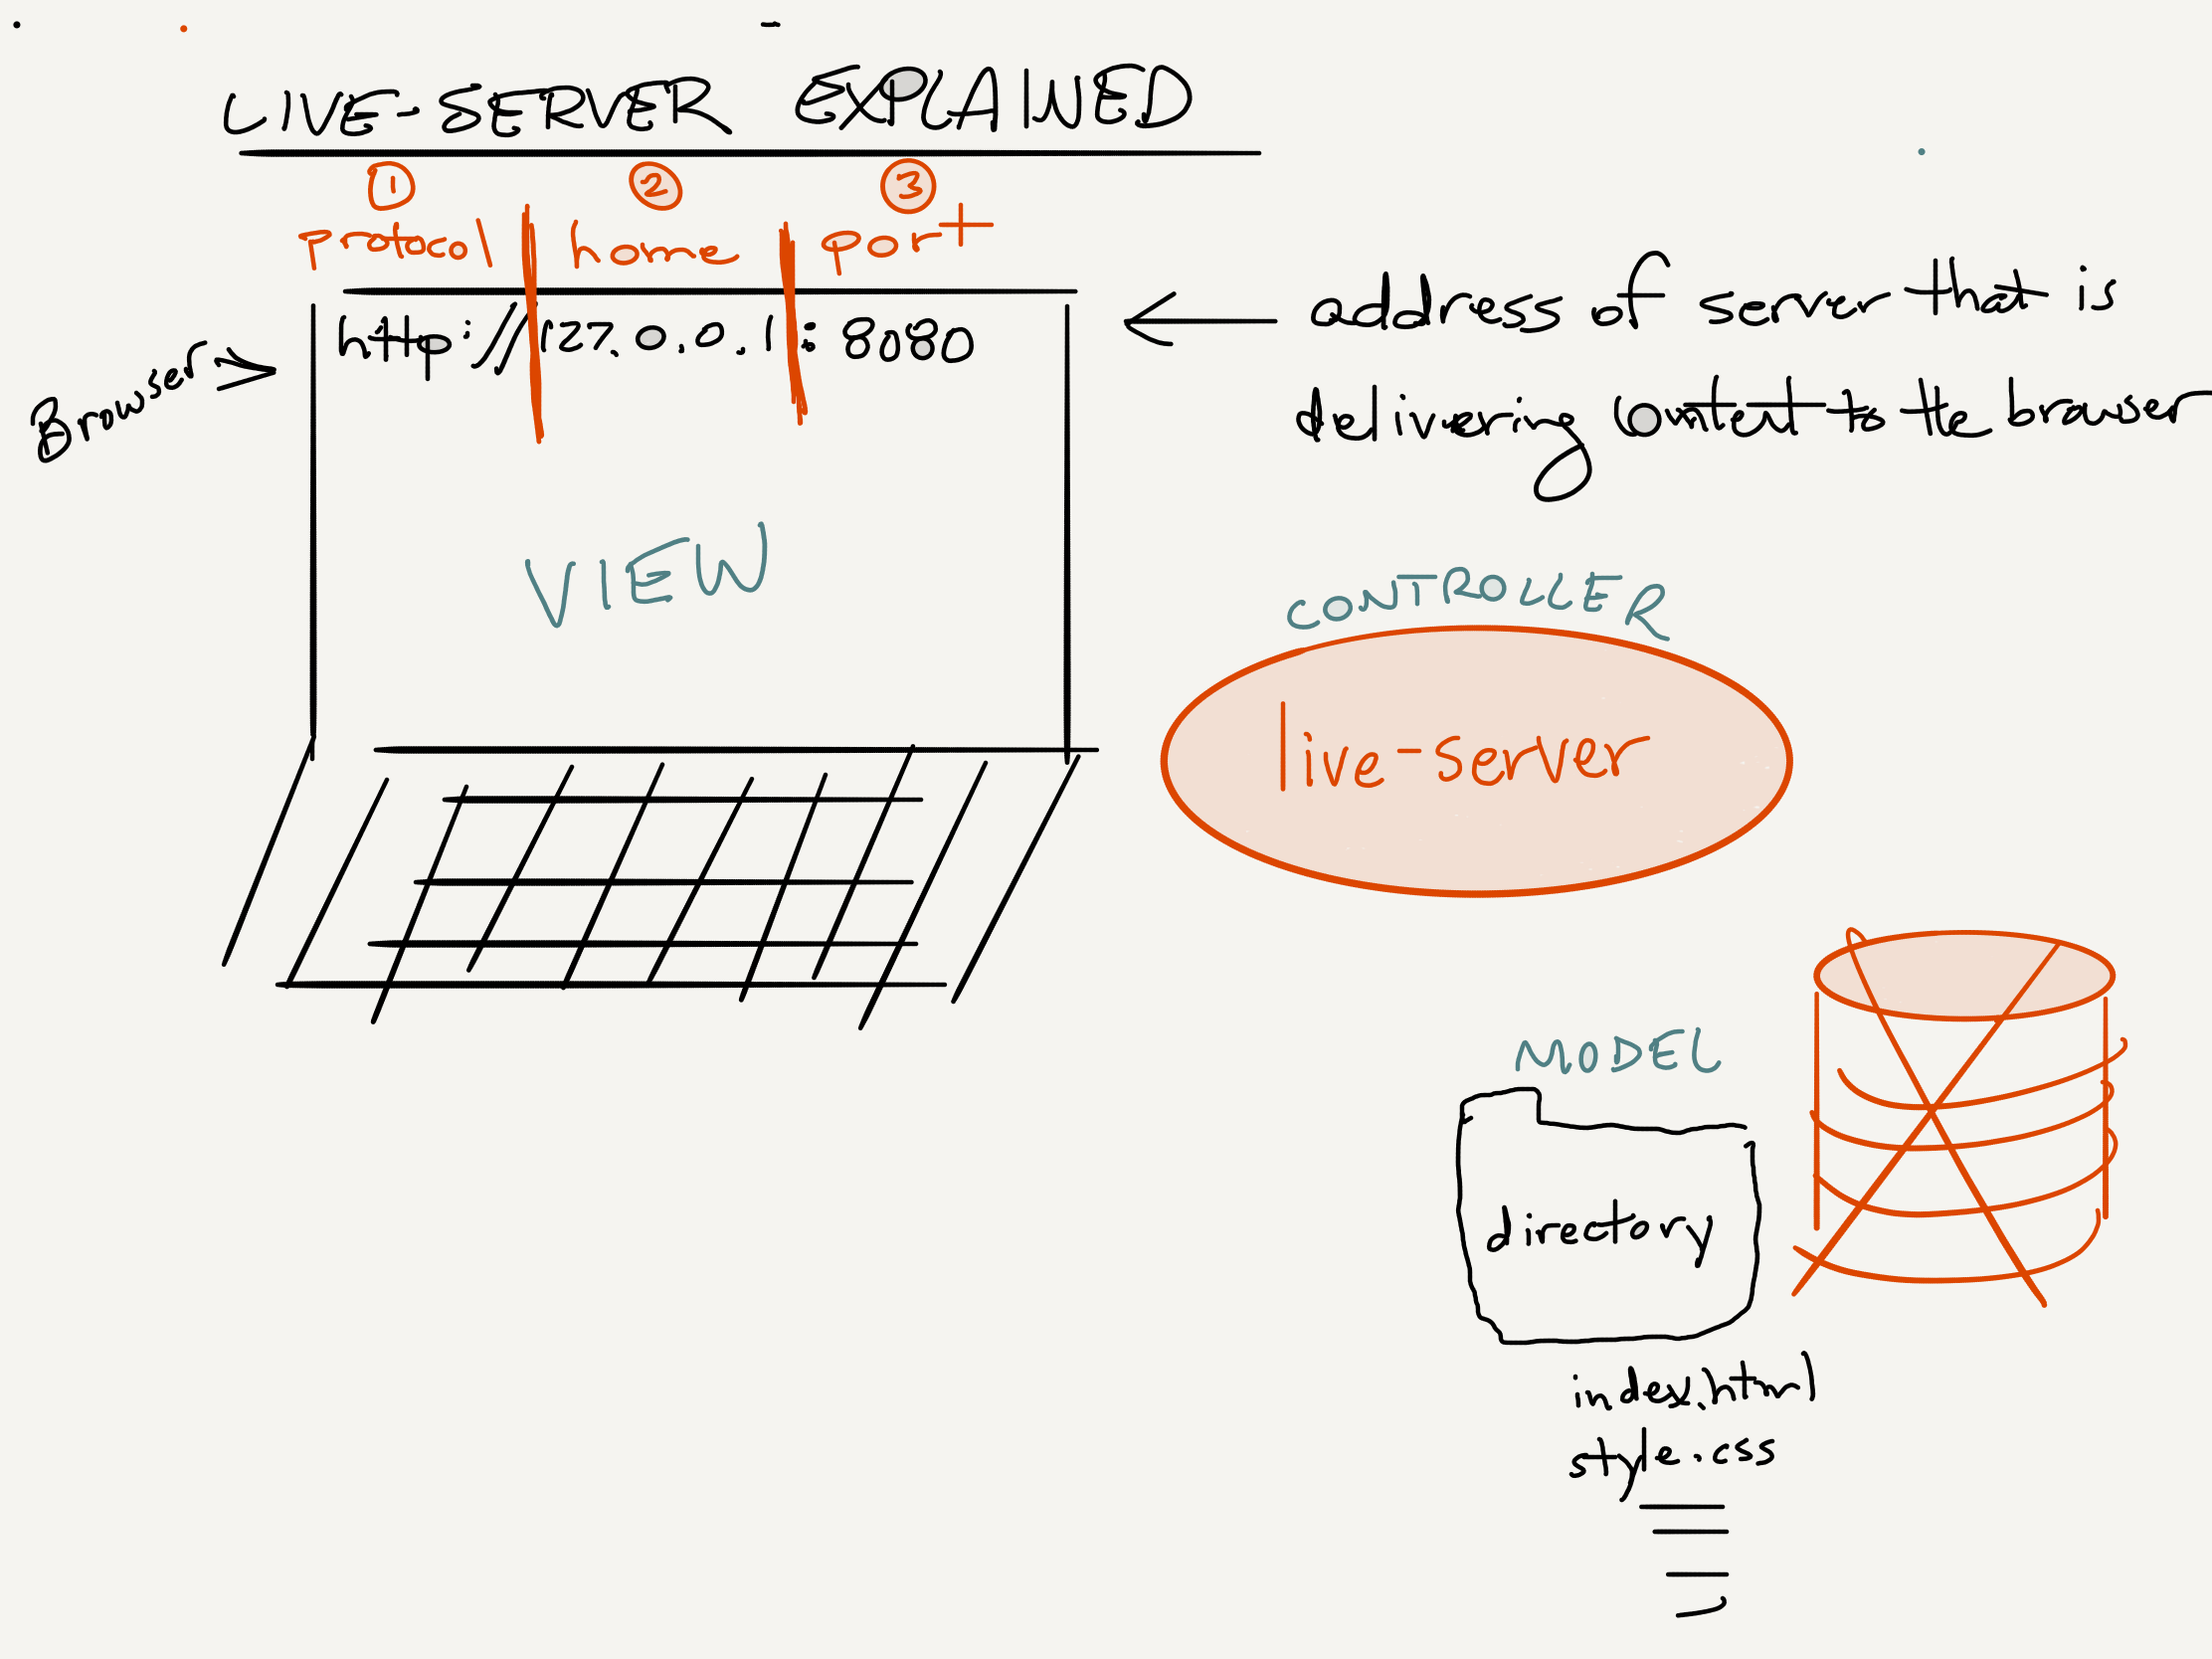 LIVE-SERVER EXPLAINED
1 2 3
protocol home port
http://127.0.0.1:8080
Browser
address of server that is
delivering content to the browser
VIEW
CONTROLLER
live-server
MODEL
directory
index.html
style.css